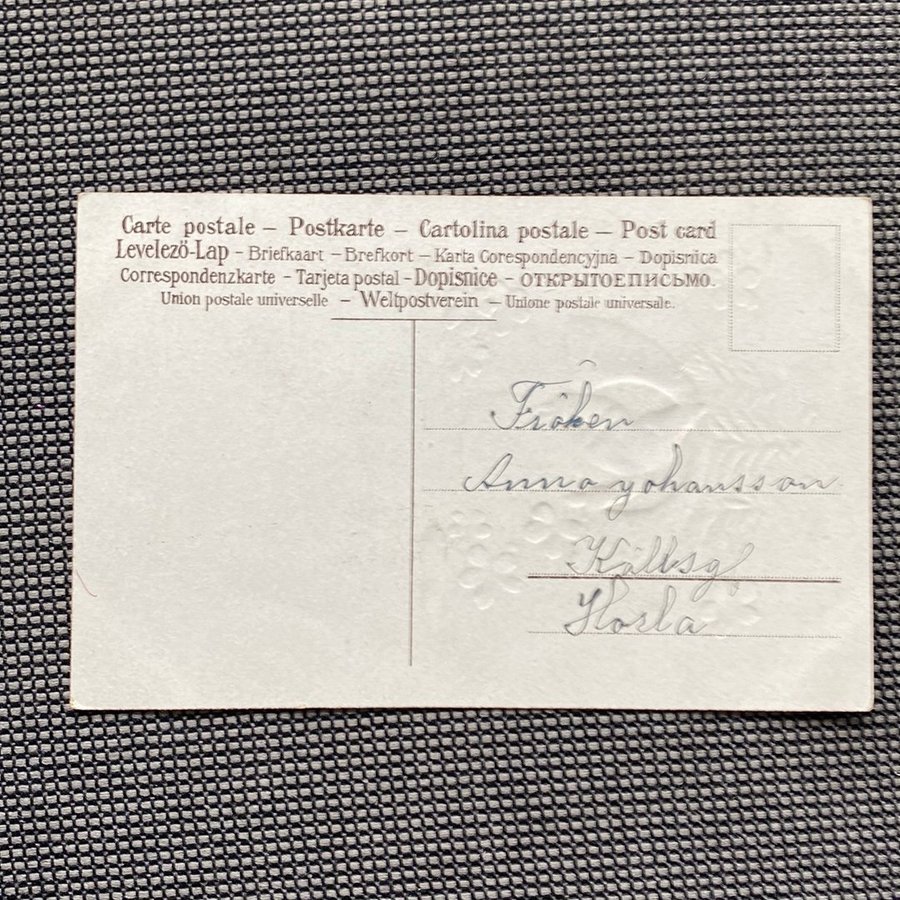 Carte postale – Postkarte – Cartolina postale – Post card
Levelező-Lap – Briefkaart – Brefkort – Karta Corespondencyjna – Dopisnica
Correspondenzkarte – Tarjeta postal – Dopisnice – ОТКРЫТОЕПИСЬМО.
Union postale universelle – Weltpostverein – Unione postale universale.
Fröken
Anna Johansson
Hosla